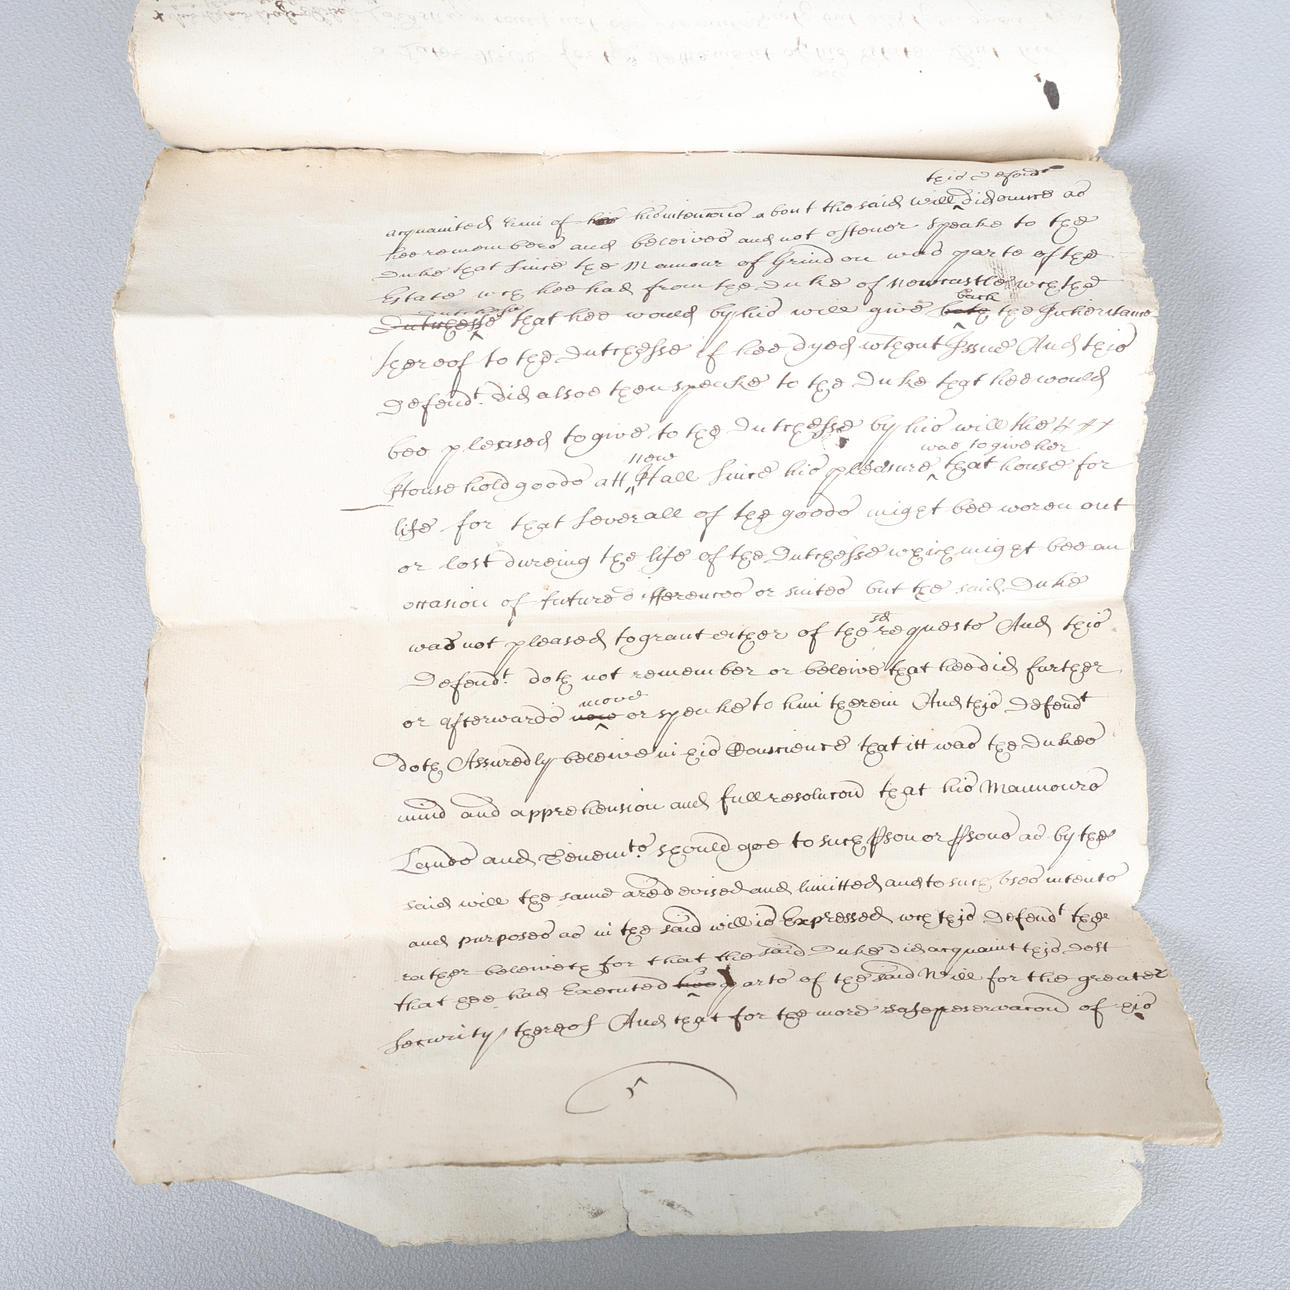 this Defendt
acquainted him of his intencons about the said will did once as
hee remembers and beleives and not oftener speake to the
Duke that since the Mannour of Grindon was parte of the
Estate wch hee had from the Duke of Newcastle wth the
Dutchesse that hee would by his will give back the Inheritance
thereof to the Dutchesse if hee dyed wthout Issue And this
Defendt. did alsoe then speake to the Duke that hee would
bee pleased to give to the Dutchesse by his will the
new was to give her
Household goods att Hall since his pleasure that house for
life for that severall of the goods might bee woren out
or lost dureing the life of the Dutchesse which might bee an
occasion of future differences or suites but the said Duke
sd
was not pleased to grant either of the requests And this
Defendt. doth not remember or beleive that hee did further
move
or afterwards or speake to him therein And this Defendt
doth Assuredly beleive in his Conscience that itt was the Dukes
mind and apprehension and full resolucon that his Mannours
Lands and Tenemts. should goe to such pson or psons as by the
said will the same are devised and limitted and to such uses intents
and purposes as in the said will is Expressed wch this Defendt the
rather beleiveth for that the said Duke did acquaint this Deft
that hee had Executed parts of the said Will for the greater
security thereof And that for the more safe preservacon of his